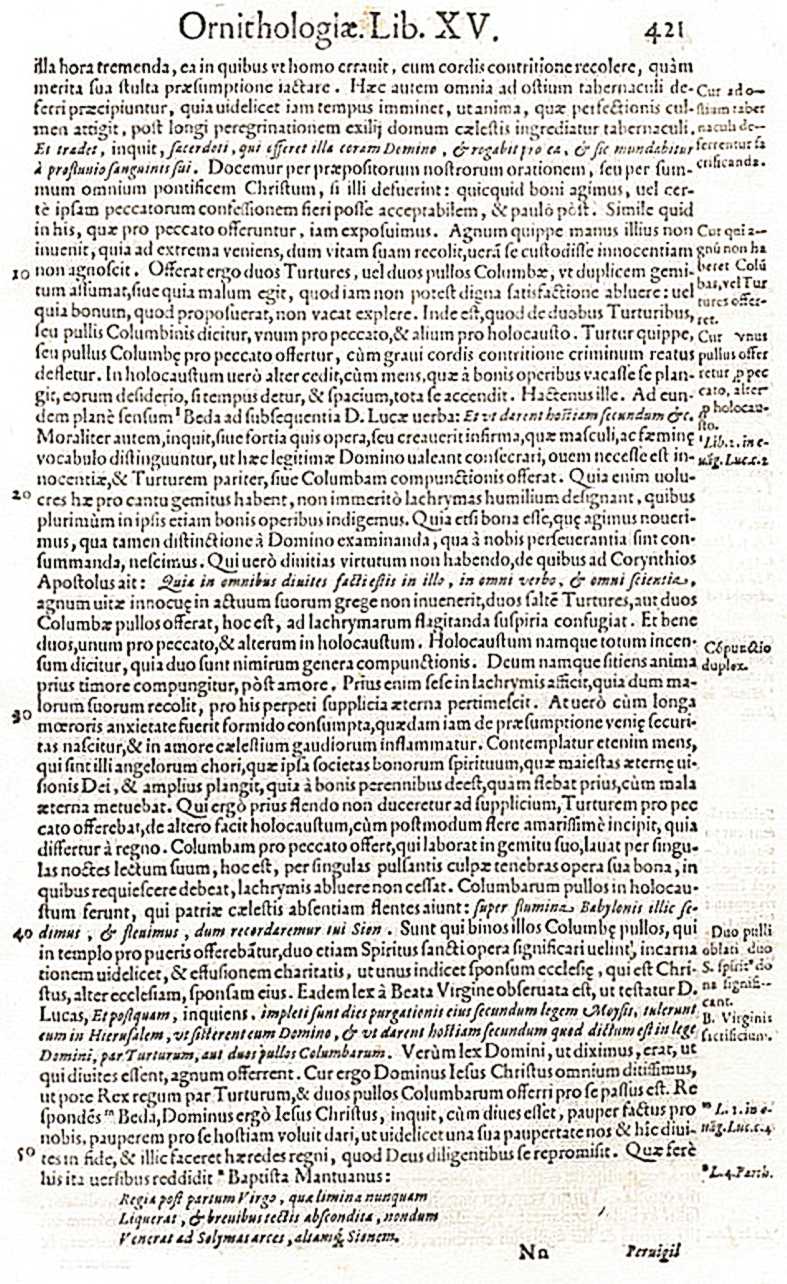 Ornithologiæ. Lib. XV. 421
illa hora tremenda, ea in quibus vt homo errauit, cum cordis contritione recolere, quàm
merita sua stulta præsumptione iactare. Hæc autem omnia ad ostium tabernaculi de-
ferri præcipiuntur, quia uidelicet iam tempus imminet, ut anima, quæ perfectionis cul-
men attigit, post longi peregrinationem exilij domum cælestis ingrediatur tabernaculi.
Et tradet, inquit, sacerdoti, qui offeret illa coram Domino, & rogabit pro ea, & sic mundabitur
à profluuio sanguinis sui. Docemur per præpositorum nostrorum orationem, seu per sum-
mum omnium pontificem Christum, si illi defuerint: quicquid boni agimus, uel cer-
tè ipsam peccatorum confessionem fieri posse acceptabilem, & paulò pòst. Simile quid
in his, quæ pro peccato offeruntur, iam exposuimus. Agnum quippe manus illius non
inuenit, quia ad extrema veniens, dum vitam suam recolit, uerã se custodisse innocentiam
10 non agnoscit. Offerat ergo duos Turtures, uel duos pullos Columbæ, vt duplicem gemi-
tum assumat, siue quia malum egit, quod iam non potest digna satisfactione abluere: uel
quia bonum, quod proposuerat, non vacat explere. Inde est, quod de duobus Turturibus,
seu pullis Columbinis dicitur, vnum pro peccato, & alium pro holocausto. Turtur quippe,
seu pullus Columbę pro peccato offertur, cùm graui cordis contritione criminum reatus
defletur. In holocaustum uerò alter cedit, cùm mens, quæ à bonis operibus vacasse se plan-
git, eorum desiderio, si tempus detur, & spacium, tota se accendit. Hactenus ille. Ad eun-
dem planè sensum l Beda ad subsequentia D. Lucæ uerba: Et vt darent hostiam secundum &c.
Moraliter autem, inquit, siue fortia quis opera, seu creauerit infirma, quæ masculi, ac fæminę
vocabulo distinguuntur, ut hæc legitimæ Domino ualeant consecrari, ouem necesse est in-
nocentiæ, & Turturem pariter, siue Columbam compunctionis offerat. Quia enim uolu-
20 cres hæ pro cantu gemitus habent, non immeritò lachrymas humilium designant, quibus
plurimùm in ipsis etiam bonis operibus indigemus. Quia etsi bona esse, quę agimus noueri-
mus, qua tamen distinctione à Domino examinanda, qua à nobis perseuerantia sint con-
summanda, nescimus. Qui uerò diuitias virtutum non habendo, de quibus ad Corynthios
Apostolus ait: Quia in omnibus diuites facti estis in illo, in omni verbo, & omni scientia,
agnum uitæ innocuę in actuum suorum grege non inuenerit, duos saltẽ Turtures, aut duos
Columbæ pullos offerat, hoc est, ad lachrymarum flagitanda suspiria confugiat. Et bene
duos, unum pro peccato, & alterum in holocaustum. Holocaustum namque totum incen-
sum dicitur, quia duo sunt nimirum genera compunctionis. Deum namque sitiens anima
prius timore compungitur, pòst amore. Prius enim sese in lachrymis afficit, quia dum ma-
lorum suorum recolit, pro his perpeti supplicia æterna pertimescit. At uerò cùm longa
30 mœroris anxietate fuerit formido consumpta, quædam iam de præsumptione venię securi-
tas nascitur, & in amore cælestium gaudiorum inflammatur. Contemplatur etenim mens,
qui sint illi angelorum chori, quæ ipsa societas bonorum spirituum, quæ maiestas æternę ui-
sionis Dei, & amplius plangit, quia à bonis perennibus deest, quàm flebat prius, cùm mala
æterna metuebat. Qui ergò prius flendo non duceretur ad supplicium, Turturem pro pec
cato offerebat, de altero facit holocaustum, cùm postmodum flere amarissimè incipit, quia
differtur à regno. Columbam pro peccato offert, qui laborat in gemitu suo, lauat per singu-
las noctes lectum suum, hoc est, per singulas pulsantis culpæ tenebras opera sua bona, in
quibus requiescere debeat, lachrymis abluere non cessat. Columbarum pullos in holocau-
stum ferunt, qui patriæ cælestis absentiam flentes aiunt: super flumina Babylonis illic se-
40 dimus, & fleuimus, dum recordaremur tui Sion. Sunt qui binos illos Columbę pullos, qui
in templo pro pueris offerebãtur, duo etiam Spiritus sancti opera significari uelint, incarna
tionem uidelicet, & effusionem charitatis, ut unus indicet sponsum ecclesię, qui est Chri-
stus, alter ecclesiam, sponsam eius. Eadem lex à Beata Virgine obseruata est, ut testatur D.
Lucas, Et postquam, inquiens, impleti sunt dies purgationis eius secundum legem Moysis, tulerunt
eum in Hierusalem, vt sisterent eum Domino, & vt darent hostiam secundum quod dictum est in lege
Domini, par Turturum, aut duos pullos Columbarum. Verùm lex Domini, ut diximus, erat, ut
qui diuites essent, agnum offerrent. Cur ergo Dominus Iesus Christus omnium ditissimus,
ut pote Rex regum par Turturum, & duos pullos Columbarum offerri pro se passus est. Re
spondẽs m Beda, Dominus ergò Iesus Christus, inquit, cùm diues esset, pauper factus pro
nobis, pauperem pro se hostiam voluit dari, ut uidelicet una sua paupertate nos & hîc diui-
50 tes in fide, & illic faceret hæredes regni, quod Deus diligentibus se repromisit. Quæ ferè
his ita uersibus reddidit n Baptista Mantuanus:
Regia post partum Virgo, qua limina nunquam
Liquerat, & breuibus tectis abscondita, nondum
Venerat ad Solymas arces, altamq́; Sionem,
Nn Peruigil
Cur ad o-
stium taber
naculi de-
ferrentur sa
crificanda.
Cur qui a-
gnũ non ha
beret Colũ
bas, vel Tur
tures offer-
ret.
Cur vnus
pullus offer
retur p pec
cato, alter
p holocau-
sto.
l Lib. 1. in e-
uãg. Luc. c. 2
Cõpunctio
duplex.
Duo pulli
oblati duo
S. spirit' do
na signifi-
cant.
B. Virginis
sacrificium.
m L. 1. in e-
uãg. Luc. c. 4.
n L. 4. Parth.